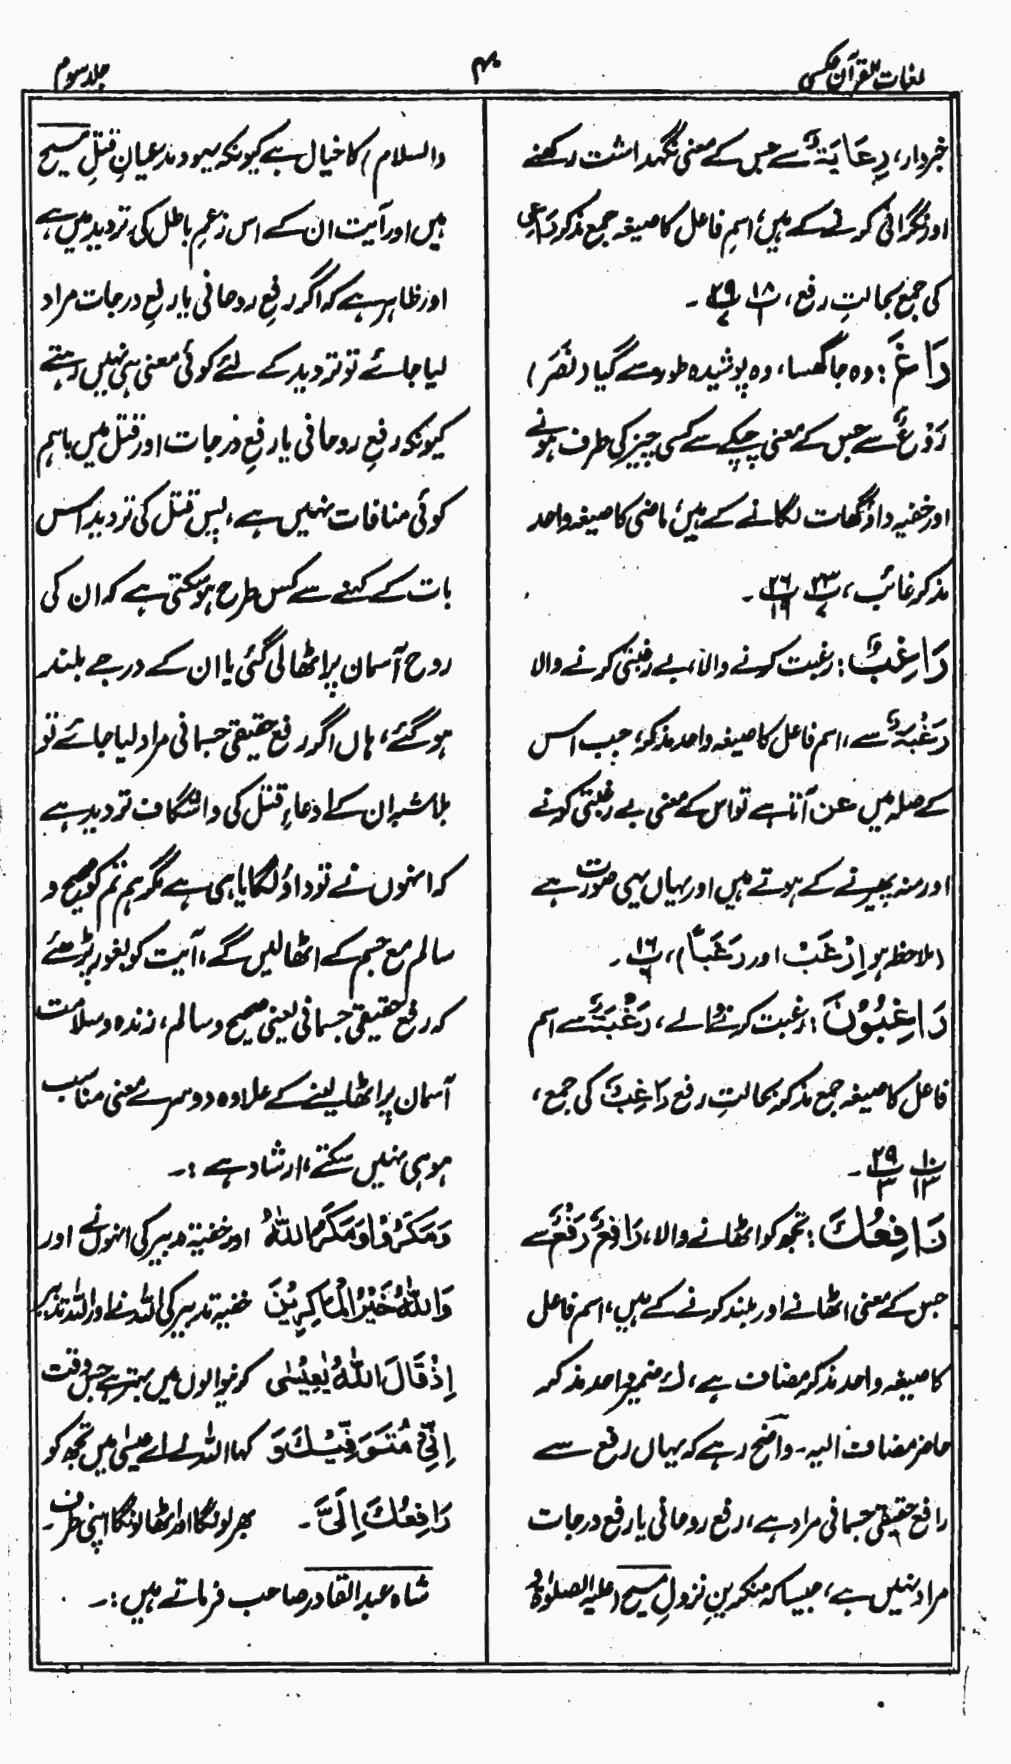 لغات القرآن عکسی
۴۰
جلد سوم
خبردار، رِعَایَۃٌ سے جس کے معنی نگہداشت رکھنے
اور نگرانی کرنے کے ہیں، اسمِ فاعل کا صیغہ جمع مذکر رَاعِی
کی جمع بحالتِ رفع، ۱۸/۱ پ ۲۹/۷ پ ۔
رَاغَ : وہ جا گھسا، وہ پوشیدہ طور سے گیا (نَصَرَ)
رَوْغٌ سے جس کے معنی چپکے سے کسی چیز کی طرف ہونے
اور خفیہ داؤ گھات لگانے کے ہیں، ماضی کا صیغہ واحد
مذکر غائب، ۲۳/۷ پ ۲۶/۱۹ پ ۔
رَاغِبٌ : رغبت کرنے والا، بے رغبتی کرنے والا
رَغْبَۃٌ سے، اسم فاعل کا صیغہ واحد مذکر، جب اس
کے صلہ میں عن آتا ہے تو اس کے معنی بے رغبتی کرنے
اور منہ پھیرنے کے ہوتے ہیں اور یہاں یہی صورت ہے
(ملاحظہ ہو اِرْغَبْ اور رَغَبًا)، ۱۶/۶ پ ۔
رَاغِبُوْنَ : رغبت کرنے والے، رَغْبَۃٌ سے اسم
فاعل کا صیغہ جمع مذکر بحالتِ رفع رَاغِبٌ کی جمع،
۱۰/۱۳ پ ۲۹/۳ پ ۔
رَافِعُكَ : تجھ کو اٹھانے والا، رَافِعٌ رَفْعٌ سے
جس کے معنی اٹھانے اور بلند کرنے کے ہیں، اسم فاعل
کا صیغہ واحد مذکر مضاف ہے، ك ضمیر واحد مذکر
حاضر مضاف الیہ ۔ واضح رہے کہ یہاں رفع سے
رافع حقیقی جسمانی مراد ہے، رفع روحانی یا رفع درجات
مراد نہیں ہے، جیسا کہ منکرینِ نزولِ مسیح (علیہ الصلوٰۃ
والسلام) کا خیال ہے کیونکہ یہود مدعیانِ قتلِ مسیح
ہیں اور آیت ان کے اس زعمِ باطل کی تردید میں ہے
اور ظاہر ہے کہ اگر رفعِ روحانی یا رفعِ درجات مراد
لیا جائے تو تردید کے لئے کوئی معنی ہی نہیں رہتے
کیونکہ رفعِ روحانی یا رفعِ درجات اور قتل میں باہم
کوئی منافات نہیں ہے، پس قتل کی تردید اس
بات کے کہنے سے کس طرح ہو سکتی ہے کہ ان کی
روح آسمان پر اٹھالی گئی یا ان کے درجے بلند
ہو گئے، ہاں اگر رفع حقیقی جسمانی مراد لیا جائے تو
بلاشبہ ان کے ادعاءِ قتل کی واشگاف تردید ہے
کہ انہوں نے تو داؤ لگایا ہی ہے مگر ہم تم کو صحیح و
سالم مع جسم کے اٹھالیں گے، آیت کو بغور پڑھئے
کہ رفع حقیقی جسمانی یعنی صحیح و سالم، زندہ و سلامت
آسمان پر اٹھالینے کے علاوہ دوسرے معنی مناسب
ہو ہی نہیں سکتے، ارشاد ہے :۔
وَمَكَرُوْا وَمَكَرَ اللّٰهُ اور خفیہ تدبیر کی انہوں نے اور
وَاللّٰهُ خَيْرُ الْمَاكِرِيْنَ خفیہ تدبیر کی اللہ نے اور اللہ تدبیر
اِذْ قَالَ اللّٰهُ يٰعِيْسٰى کرنیوالوں میں بہتر ہے جس وقت
اِنِّىْ مُتَوَفِّيْكَ وَ کہا اللہ نے اے عیسٰی میں تجھ کو
رَافِعُكَ اِلَىَّ ۔ بھر لونگا اور اٹھا لونگا اپنی طرف ۔
شاہ عبدالقادر صاحب فرماتے ہیں :۔